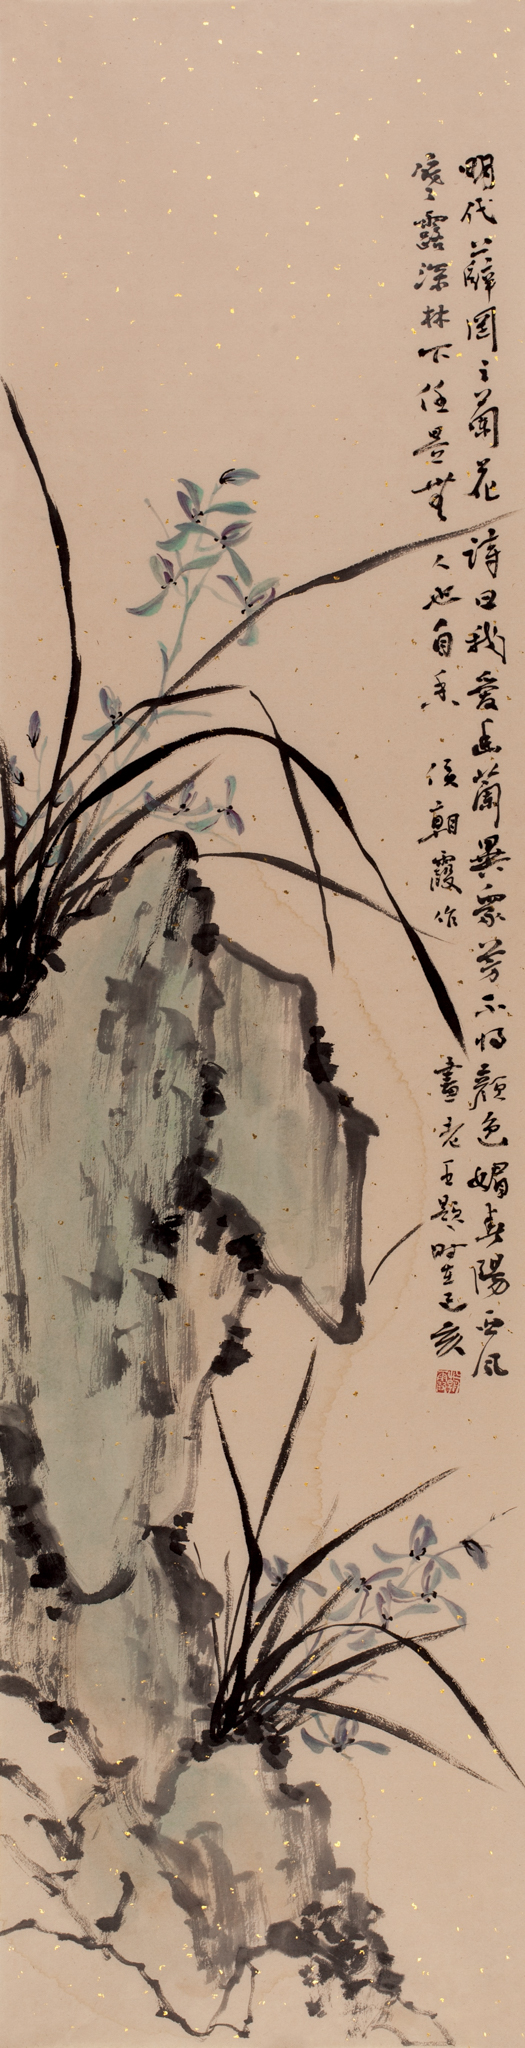 明代薛岡之蘭花詩曰我愛幽蘭異眾芳不將顏色媚春陽西風
寒露深林下任是無人也自香 侯朝霞作
畫老王題時在己亥